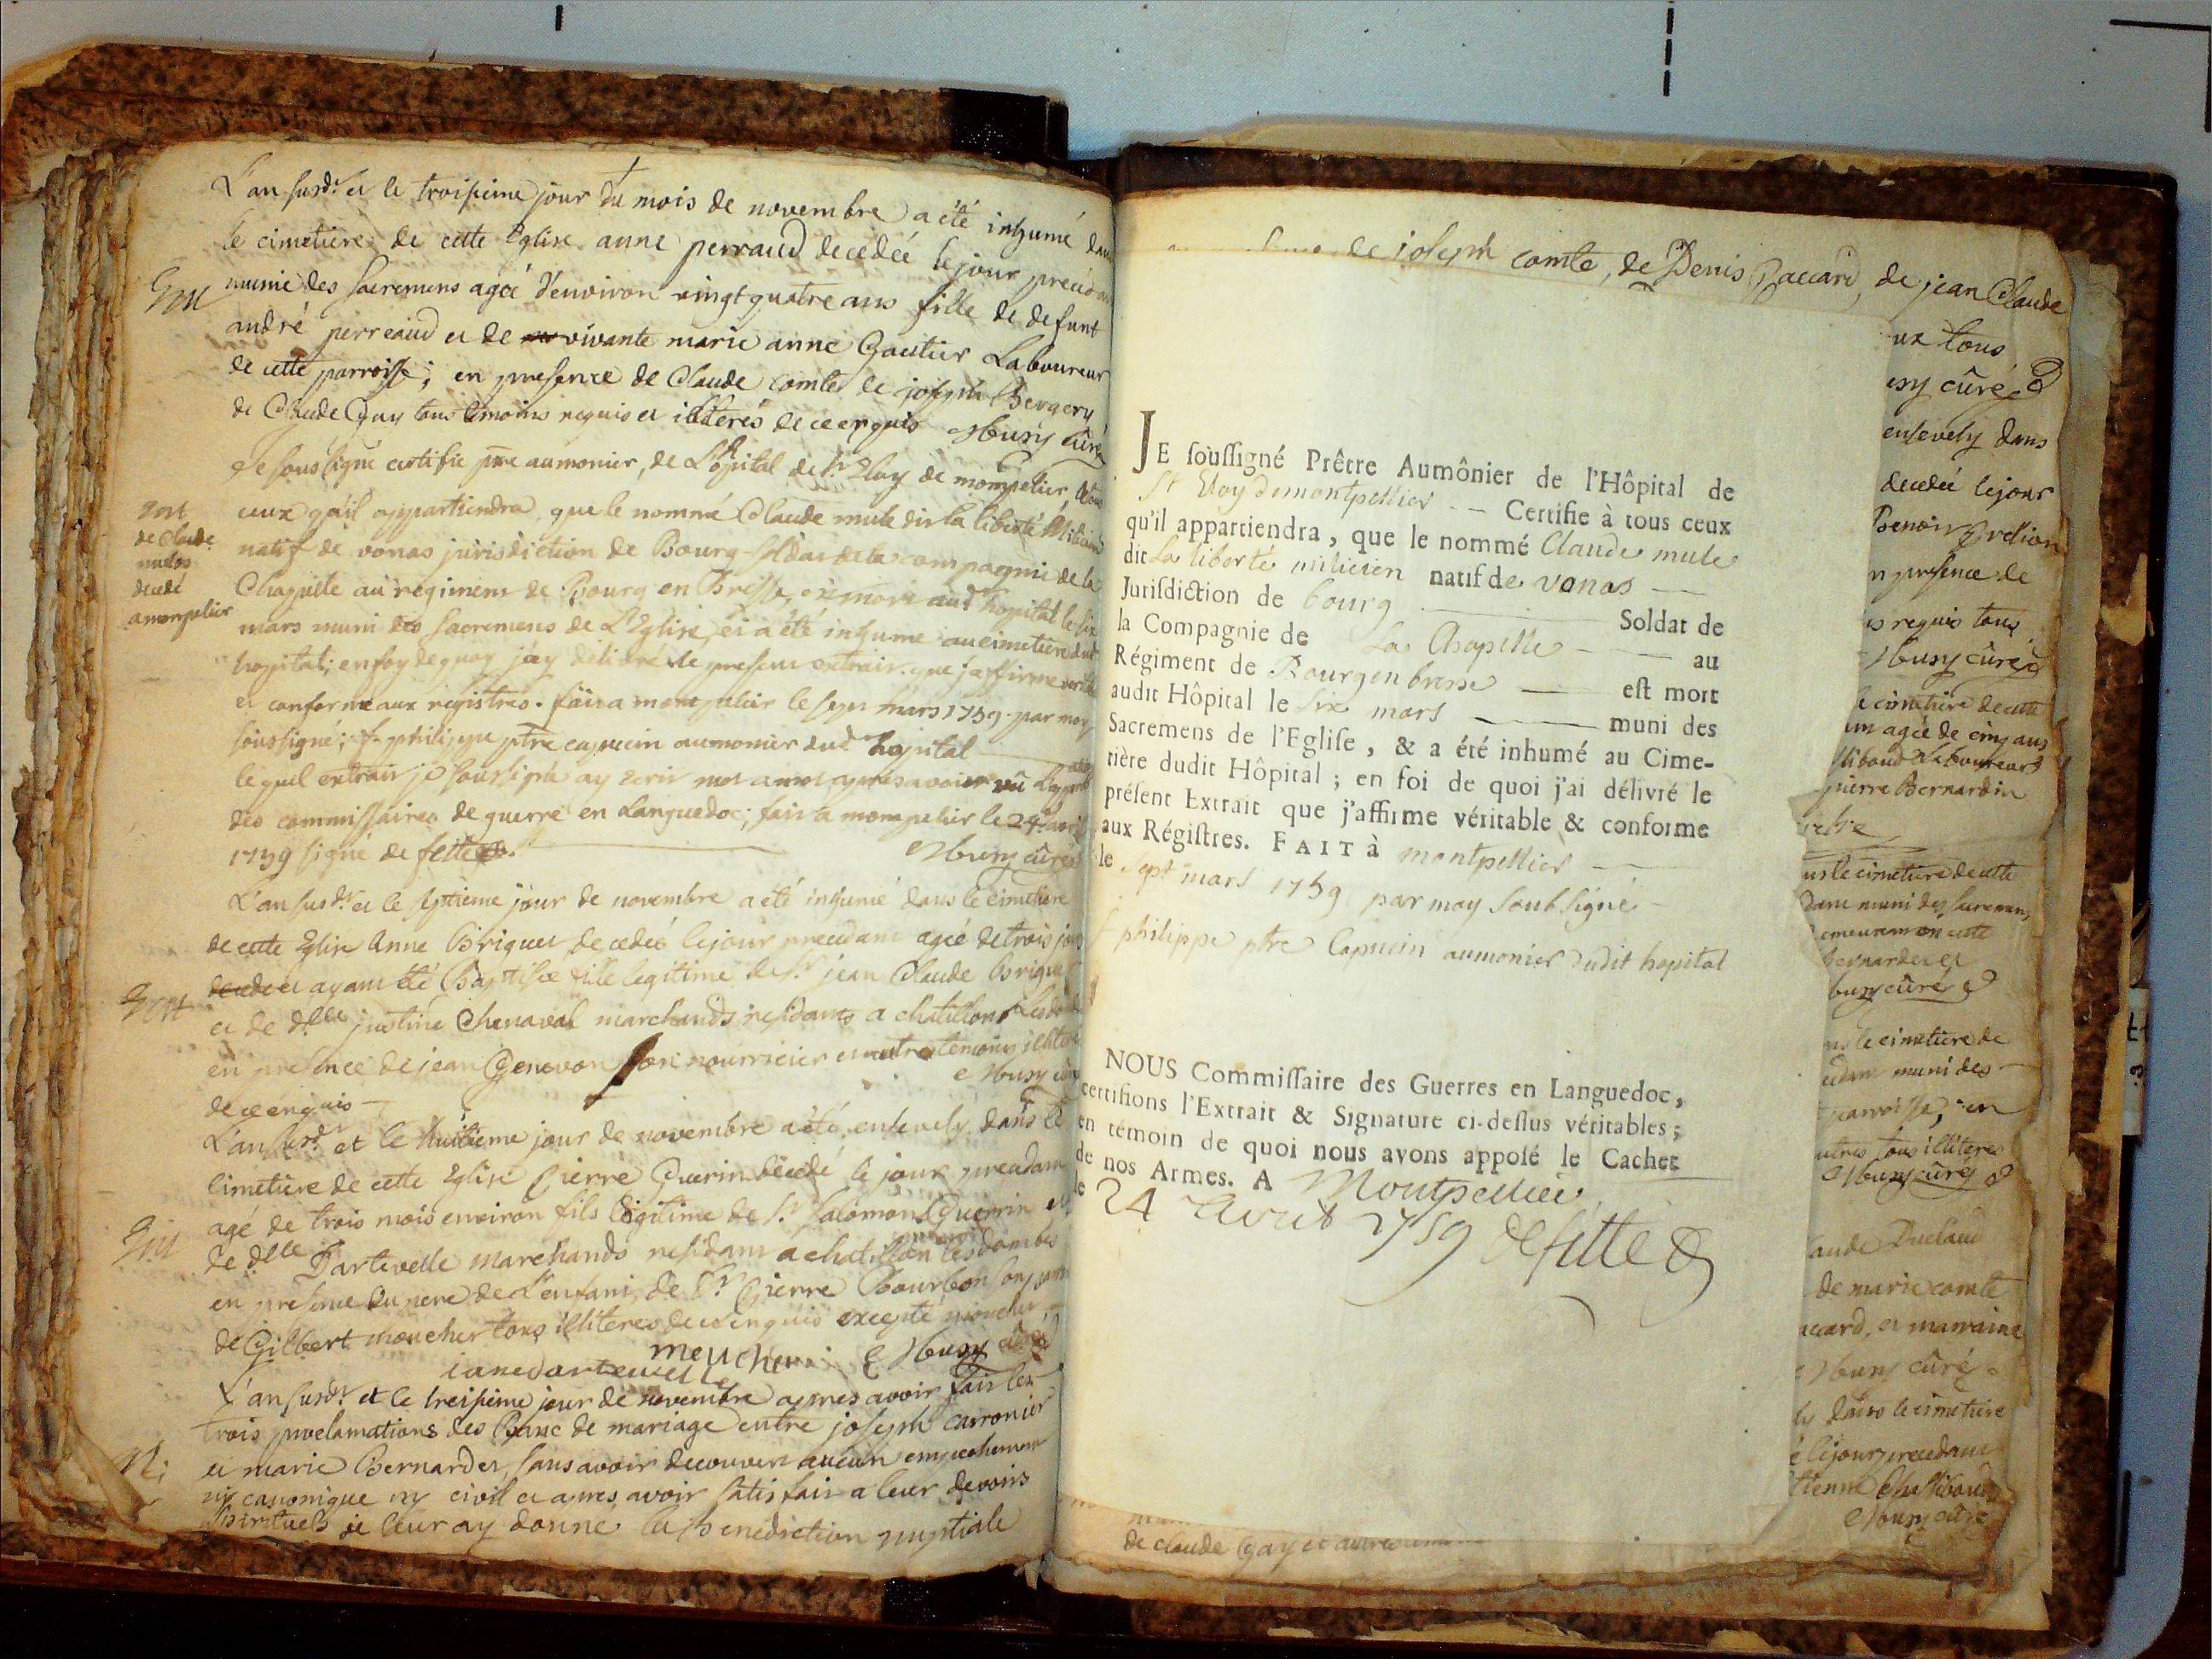 L'an susdt et le troisieme jour du mois de novembre a été inhumé dans
le cimetiere de cette Eglise anne perraud decedée le jour precedant
munie des sacremens agée d'environ vingt quatre ans fille de defunt
andré perreaud et de vivante marie anne Gautier Laboureur
de cette parroisse; en presence de Claude comte de joseph Bergery
de Claude Gay tous temoins requis et illiteres de ce enquis Mbusy curé
Je soussigné certifie ptre aumonier, de L'hopital de St Eloy de mompelier, a tous
ceux qu'il appartiendra, que le nommé Claude mule dit la liberté Milicien
natif de vonas jurisdiction de Bourg soldat de la compagnie de la
Chapelle au regiment de Bourg en Bresse, est mort audt hopital le six
mars muni des sacremens de L'Eglise, et a été inhume au cimetiere dudt
hopital; en foy de quoy j'ay delivré le present extrait que j'affirme veritable
et conforme aux registres. fait a montpelier le sept mars 1759. par moy
soussigné; f. philippe ptre capucin aumonier dud hopital
lequel extrait je soussigné ay ecrit mot a mot apres avoir vû
des commissaires de guerre en Languedoc; fait a mompelier le 24 avril
1759 signé de fitte
Mbusy curé
de Claude
mule
decedé
a mompelier
L'an susdt et le septieme jour de novembre a été inhumé dans le cimetiere
de cette Eglise Anne Briquet decedée le jour precedant agée de trois jours
et ayant été Baptisée fille legitime de Sr jean Claude Briquet
et de dlle justine Chenaval marchands residants a chatillon
en presence de jean Genevon son nourricier et autres temoins illiteres
de ce enquis Mbusy curé
L'an susdt et le huitieme jour de novembre a été ensevely dans le
cimetiere de cette Eglise Pierre Guerin decedé le jour precedant
agé de trois mois environ fils legitime de Sr Salomon Guerrin et
de dlle Dartevelle marchands residant a chatillon les dombes
en presence du pere de L'enfant, de Sr Pierre Bourbon son
de Gilbert moucher tous illiteres de ce enquis excepté moucher
meucher Mbusy curé
iane darteuelle
L'an susdt et le treisieme jour de novembre apres avoir fait les
trois proclamations des Banc de mariage entre joseph carronier
et marie Bernardet sans avoir decouvert aucun empechement
ny canonique ny civil et apres avoir satisfait a leur devoirs
spirituels je leur ay donné la Benediction nuptiale
de joseph comte, de Denis Paccard, de jean Claude
JE soussigné Prêtre Aumônier de l'Hôpital de
St Eloy de montpellier -- Certifie à tous ceux
qu'il appartiendra, que le nommé Claude mule
dit La liberté milicien natif de vonas
Jurisdiction de bourg Soldat de
la Compagnie de La Chapelle au
Régiment de Bourgenbresse est mort
audit Hôpital le six mars muni des
Sacremens de l'Eglise, & a été inhumé au Cime-
tière dudit Hôpital; en foi de quoi j'ai délivré le
présent Extrait que j'affirme véritable & conforme
aux Régistres. FAIT à montpellier
le sept mars 1759 par moy soubsigné
f philippe ptre Capucin aumonier dudit hopital
NOUS Commissaire des Guerres en Languedoc,
certifions l'Extrait & Signature ci-dessus véritables;
en témoin de quoi nous avons apposé le Cachet
de nos Armes. A Montpellier
le 24 Avril 1759 de fitte
ux tous
Mbusy curé
ensevely dans
decedée le jour
Benoit
n presence de
is requis tous
Mbusy curé
le cimetiere de cette
un agée de cinq ans
Laboureurs
pierre Bernardin
us le cimetiere de cette
dant muni des sacremens
bernardet et
busy curé
ns le cimetiere de
edant muni des
parroisse, en
utres tous illiteres
Mbusy curé
aude Duclaud
de marie comte
accard, et marraine
Mbusy curé
ly dans le cimetiere
é le jour precedant
tienne
Mbusy curé
de claude Gay et autres